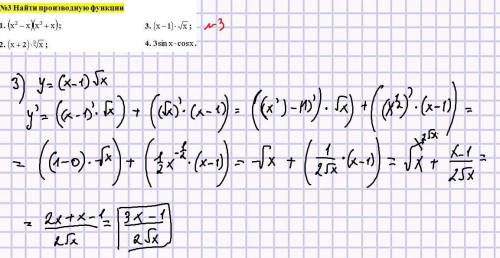 №3 Найти производную функции
1. (x² − x)(x³ + x);
3. (x − 1) · √x ;
№3
2. (x + 2) · ∛x ;
4. 3sin x · cos x .
3) y = (x−1)√x
y' = ((x−1)' · √x) + ((√x)' · (x−1) = (((x') − (1)') · √x) + ((x^½)' · (x−1)) =
= ((1−0) · √x) + (½x^−½ · (x−1)) = √x + (1/2√x · (x−1)) = √x^\2√x + x−1/2√x =
= 2x+x−1/2√x = 3x−1/2√x